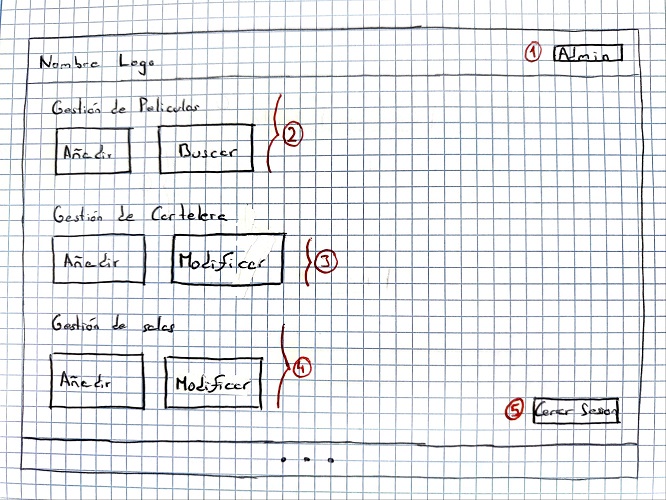 Nombre Logo
1 Admin
Gestión de Peliculas
Añadir Buscar 2
Gestión de Cartelera
Añadir Modificar 3
Gestión de salas
Añadir Modificar 4
5 Cerrar Sesion
...